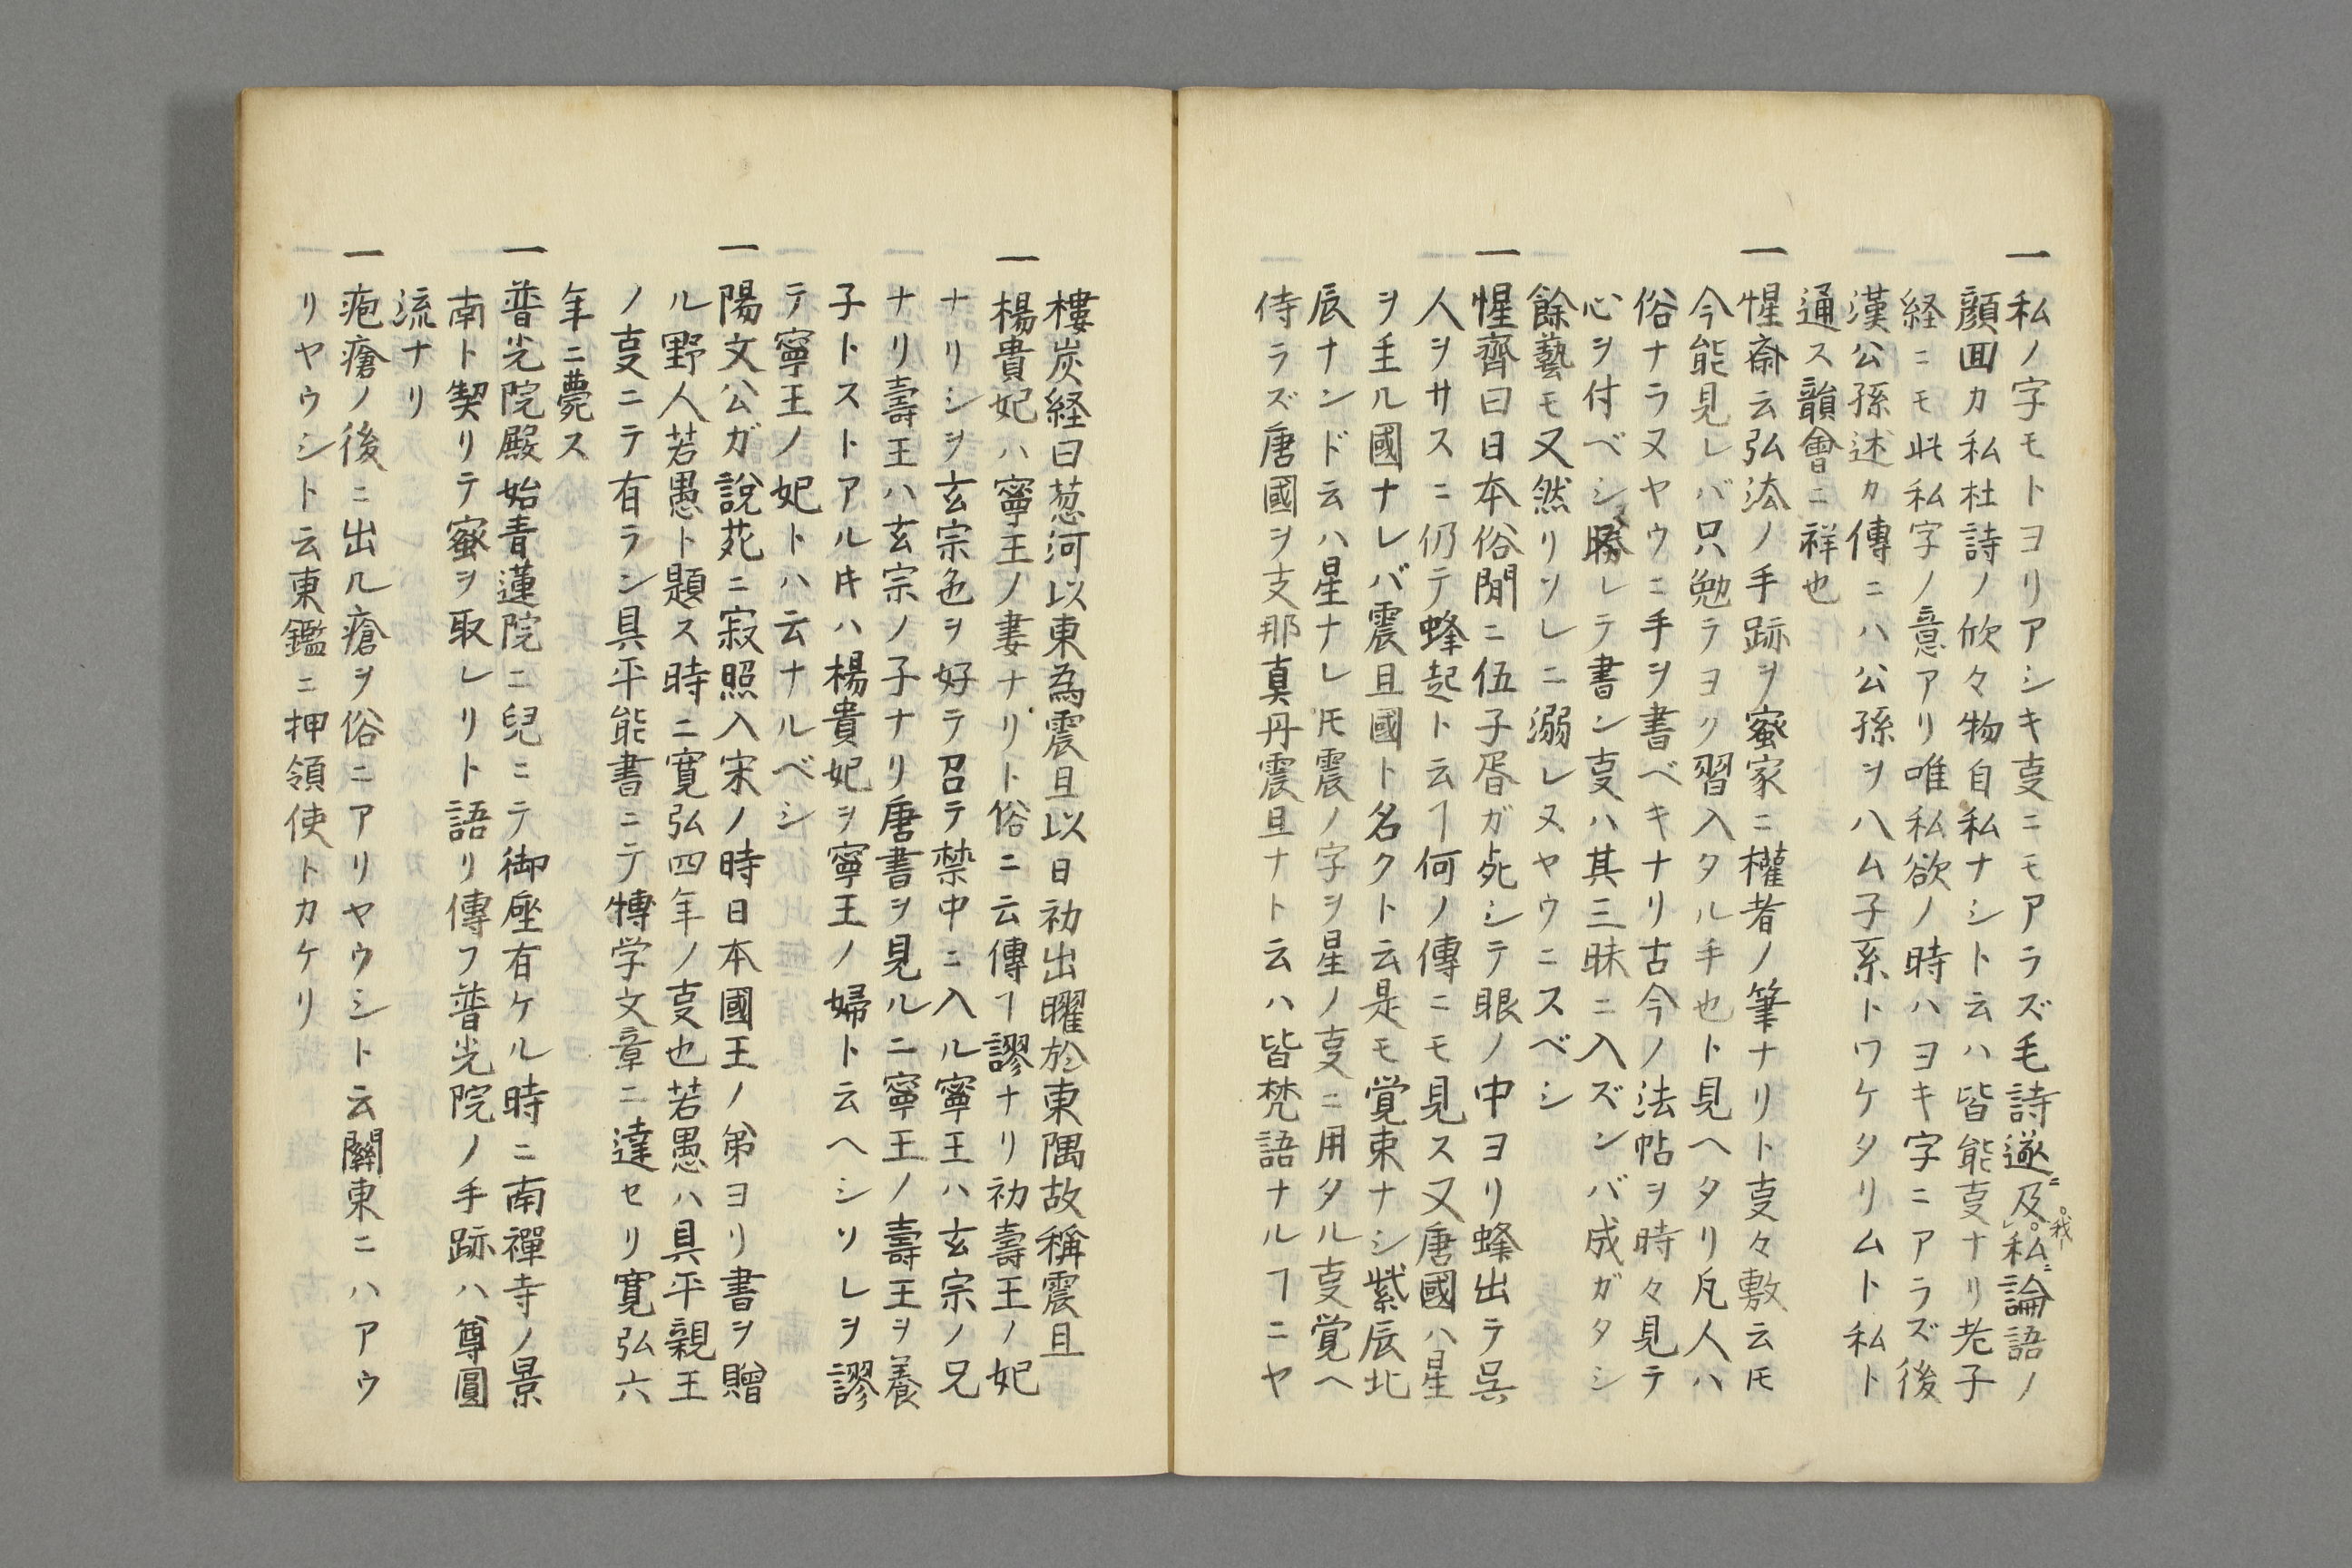 一私ノ字モトヨリアシキ叓ニモアラズ毛詩遂ニ及我私ニ論語ノ
顔回カ私杜詩ノ欣々物自私ナシト云ハ皆能叓ナリ老子
経ニモ此私字ノ意アリ唯私欲ノ時ハヨキ字ニアラズ後
漢公孫述カ傳ニハ公孫ヲハム子系トワケタリムト私ト
通ス韻會ニ祥也
一惺斎云弘法ノ手跡ヲ蜜家ニ權者ノ筆ナリト叓々敷云𪜈
今能見レバ只勉テヨク習入タル手也ト見ヘタリ凡人ハ
俗ナラヌヤウニ手ヲ書ベキナリ古今ノ法帖ヲ時々見テ
心ヲ付ベシ勝レテ書ン叓ハ其三昧ニ入ズンバ成ガタシ
餘藝モ又然リソレニ溺レヌヤウニスベシ
一惺齊曰日本俗間ニ伍子胥ガ死シテ眼ノ中ヨリ蜂出テ呉
人ヲサスニ仍テ蜂起ト云ヿ何ノ傳ニモ見ス又唐國ハ星
ヲ主ル國ナレバ震旦國ト名クト云是モ覚束ナシ紫辰北
辰ナンド云ハ星ナレ𪜈震ノ字ヲ星ノ叓ニ用タル叓覚ヘ
侍ラズ唐國ヲ支那真丹震旦ナト云ハ皆梵語ナルヿニヤ
樓炭経曰葱河以東為震旦以日初出曜於東隅故稱震旦
一楊貴妃ハ寧王ノ妻ナリト俗ニ云傳ヿ謬ナリ初壽王ノ妃
ナリシヲ玄宗色ヲ好テ召テ禁中ニ入ル寧王ハ玄宗ノ兄
ナリ壽王ハ玄宗ノ子ナリ唐書ヲ見ルニ寧王ノ壽王ヲ養
子トストアル𪜈ハ楊貴妃ヲ寧王ノ婦ト云ヘシソレヲ謬
テ寧王ノ妃トハ云ナルベシ
一陽文公ガ說苑ニ寂照入宋ノ時日本國王ノ弟ヨリ書ヲ贈
ル野人若愚ト題ス時ニ寛弘四年ノ叓也若愚ハ具平親王
ノ叓ニテ有ラン具平能書ニテ博学文章ニ達セリ寛弘六
年ニ薨ス
一普光院殿始青蓮院ニ兒ニテ御座有ケル時ニ南禪寺ノ景
南ト契リテ蜜ヲ取レリト語リ傳フ普光院ノ手跡ハ尊圓
流ナリ
一疱瘡ノ後ニ出ル瘡ヲ俗ニアリヤウシト云關東ニハアウ
リヤウシト云東鑑ニ押領使トカケリ